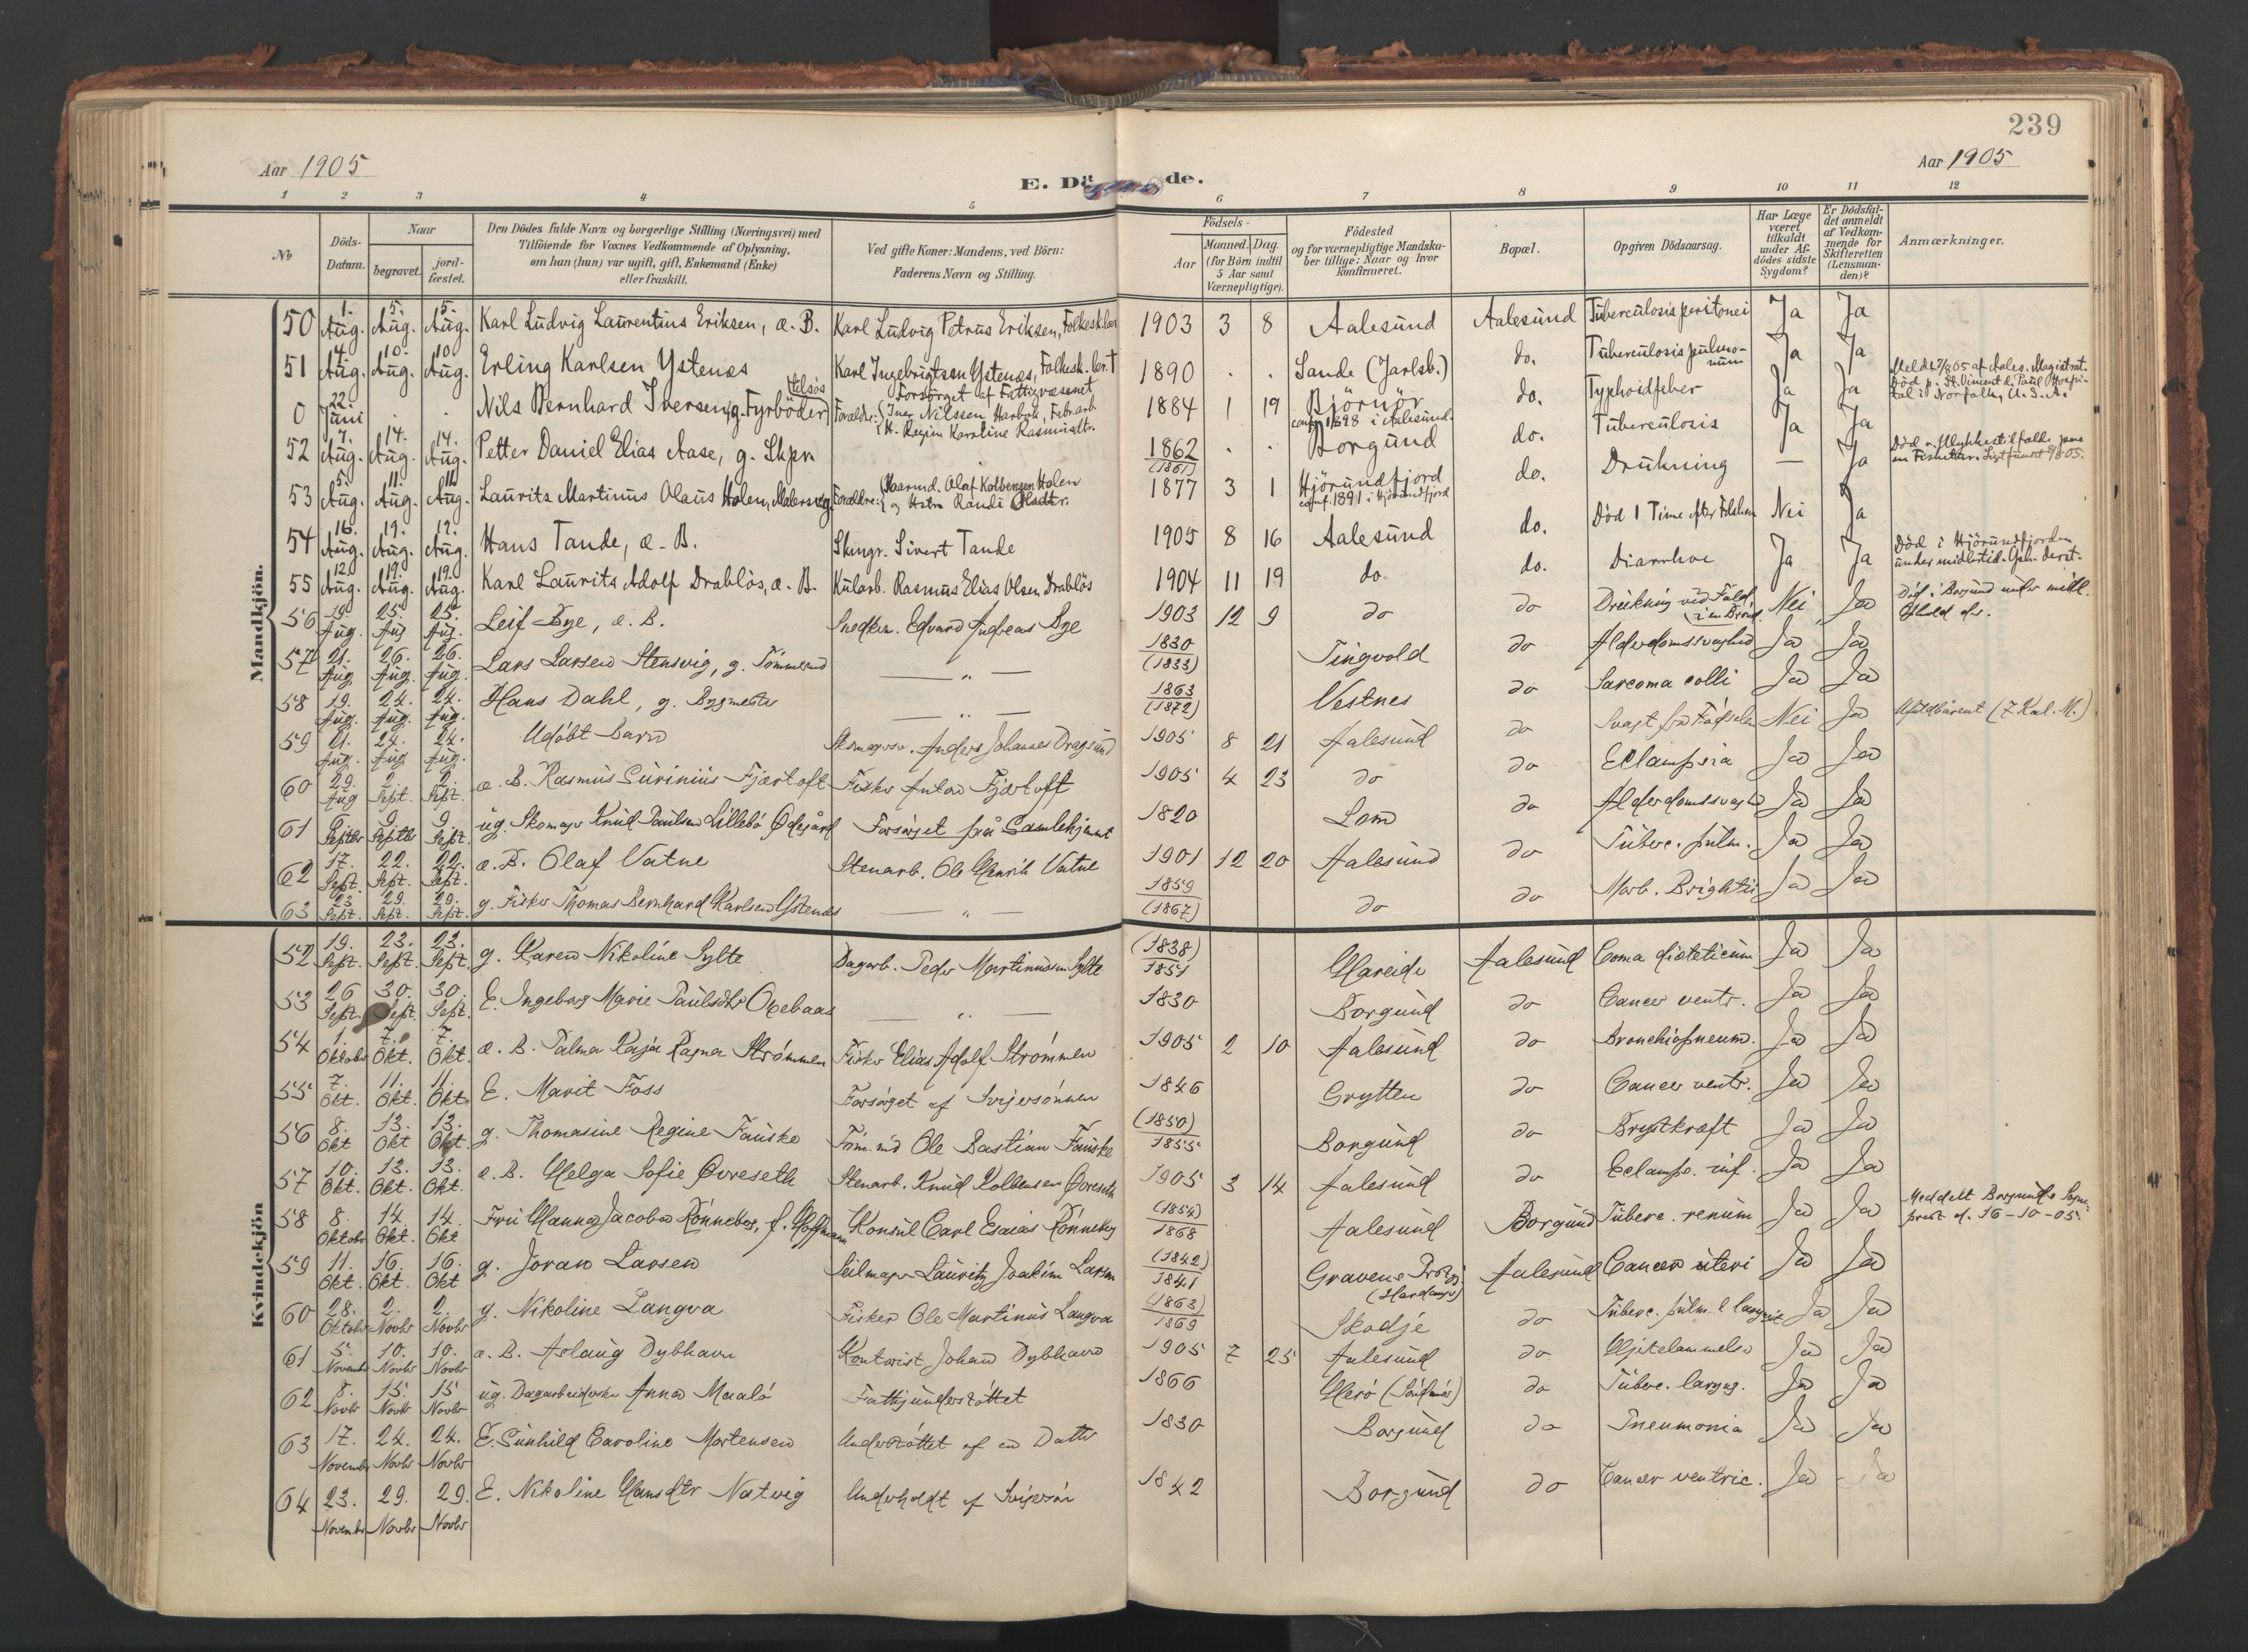 239
Aar 1905
Aar 1905
E. Dö de.
1 2 3 4 5 6 7 8 9 10 11 12
No
Döds-Datum.
Naar
begravet.
jord-fæstet.
Den Dödes fulde Navn og borgerlige Stilling (Næringsvei) med
Tilföiende for Voxnes Vedkommende af Oplysning,
om han (hun) var ugift, gift, Enkemand (Enke)
eller fraskilt.
Ved gifte Koner: Mandens, ved Börn:
Faderens Navn og Stilling.
Födsels-
Aar
Maaned. Dag.
(for Börn indtil
5 Aar samt
Værnepligtige).
Födested
og for værnepligtige Mandska-
ber tillige: Naar og hvor
konfirmeret.
Bopæl.
Opgiven Dödsaarsag.
Har Læge
været
tilkaldt
under Af-
dödes sidste
Sygdom?
Er Dödsfal-
det anmeldt
af Vedkom-
mende for
Skifteretten
(Lensman-
den)?
Anmærkninger.
Mandkjön.
50 1. Aug. 5. Aug. 5. Aug. Karl Ludvig Laurentius Eriksen, æ. B. Karl Ludvig Petrus Eriksen, 1903 3 8 Aalesund Aalesund Tuberculosis peritonei Ja Ja
51 4. Aug. 10. Aug. 10. Aug. Erling Karlsen Ystenæs Karl Ingebrigtsen Ystenæs, Forsörget af Fattigvæsenet 1890 . . Sande (Jarlsb.) do. Tuberculosis pulmo-num Ja Ja
0 22. Juni . . Nils Bernhard Iversen, g. Fyrböder Forældre: Iver Nilssen Harbok, Fabr.arb. H. Regine Karoline Rasmusdtr. 1884 1 19 Björnör conf. 1898 i Aalesund do. Typhoidfeber Ja Ja Meldt af Aales. Magistrat. Död p. St. Vincent d. Paul Hospi-tal i Norfolk, U.S.A.
52 7. Aug. 14. Aug. 14. Aug. Petter Daniel Elias Aase, g. Skpr. 1862 (1861) . . Borgund do. Tuberculosis Ja Ja
53 5. Aug. 11. Aug. 11. Aug. Laurits Martinus Olaus Holen, Forældre: Gaarmd. Olaf Kolbensen Holen og Hstr. Randi 1877 3 1 Hjörundfjord conf. 1891 i Hjörundfjord do. Drukning — Ja
54 16. Aug. 19. Aug. 19. Aug. Hans Tande, æ. B. Skmgr. Sivert Tande 1905 8 16 Aalesund do. Död 1 Time efter Födselen Nei Ja
55 12. Aug. 19. Aug. 19. Aug. Karl Laurits Adolf Drablös, æ. B. Kularb. Rasmus Elias Olsen Drablös 1904 11 19 do. do. Diarrhoe Ja Ja Död i Hjörundfjorden under midlertid. Oph. derst.
56 19. Aug. 25. Aug. 25. Aug. Leif Bye, æ. B. Snedker. Edvard Andreas Bye 1903 12 9 do do Drukning ved Fald i en Brönd Nei Ja Död i Borgund under midl. Ophold der.
57 21. Aug. 26. Aug. 26. Aug. Lars Larsen Stensvig, g. Tömmermd — „ — 1830 (1833) Tingvold do Alderdomssvaghed Ja Ja
58 19. Aug. 24. Aug. 24. Aug. Hans Dahl, g. Bygmester — „ — 1863 (1872) Vestnes do Sarcoma colli Ja Ja
59 21. Aug. 24. Aug. 24. Aug. Udöbt Barn Skomagersv. Anders Johannes Dragsund 1905 8 21 Aalesund do Svagt fra Födselen Nei Ja Ufuldbaarent (7 Kal. M.)
60 29. Aug 2. Sept. 2. Sept. æ. B. Rasmus Surinius Fjærtoft Fisker Anton Fjærtoft 1905 4 23 do do Eclampsia Ja Ja
61 6. Septbr 9. Septbr 9. Sept. ug. Skomager Knud Paulsen Lillebö Ödegård Forsörget på Gamlehjemmet 1820 Lom do Alderdomssvaghed Ja Ja
62 17. Sept. 22. Sept. 22. Sept. æ. B. Olaf Vatne Stenarb. Ole Henrik Vatne 1901 12 20 Aalesund do Tuberc. pulm. Ja Ja
63 23 Sept. 29. Sept. 29. Sept. g. Fisker Thomas Bernhard Karlsen Ystenæs — „ — 1859 (1867) do do Morb. Brightii Ja Ja
Kvindekjön
52 19. Sept. 23. Sept. 23. Sept. g. Karen Nikoline Sylte Dagarb. Peder Martinussen Sylte (1838) 1851 Hareide Aalesund Coma diæteticum Ja Ja
53 26 Sept. 30. Sept. 30. Sept. E. Ingeborg Marie Paulsdtr Oxebaas — „ — 1830 Borgund do Cancer ventr. Ja Ja
54 1. Oktober 7. Okt. 7. Okt. æ. B. Palma Kaja Ragna Strömmen Fisker Elias Adolf Strömmen 1905 2 10 Aalesund do Bronchiopneum. Ja Ja
55 7. Okt. 11. Okt. 11. Okt. E. Marit Foss Forsörget af Svigersönnen 1846 Grytten do Cancer ventr. Ja Ja
56 8. Okt 13. Okt 13. Okt. g. Thomasine Regine Fauske Töm.md Ole Bastian Fauske (1850) 1855 Borgund do Brystkræft Ja Ja
57 10. Okt. 13. Okt. 13. Okt. æ. B. Helga Sofie Övreseth Stenarb. Knud Kolbensen Övreseth 1905 3 14 Aalesund do Eclamps. inf. Ja Ja
58 8. Oktober 14. Okt. 14. Okt Fru Hanna Jacoba Rönneberg, f. Hoffmann Konsul Carl Esaias Rönneberg (1854) 1868 Aalesund Borgund Tuberc. renum Ja Ja Meddelt Borgunds Sogne-prest d. 16-10-05.
59 11. Okt. 16. Okt. 16. Okt g. Joran Larsen Seilmager Lauritz Joakim Larsen (1842) 1841 Gravens Prstgj. (Hardanger) Aalesund Cancer uteri Ja Ja
60 28. Oktober 2. Novbr 2. Novbr g. Nikoline Langva Fisker Ole Martinus Langva (1863) 1869 Skodje do Tuberc. pulm. & laryngis Ja Ja
61 5. Novembr 10. Novbr 10. Novbr æ. B. Aslaug Dybhavn Kontorist Johan Dybhavn 1905 7 25 Aalesund do Hjertelammelse Ja Ja
62 8. Novbr 15. Novbr 15 Novbr ug. Dagarbeiderske Anna Maalö Fattigunderstöttet 1866 Herö (Söndmör) do Tuberc. laryng. Ja Ja
63 17. Novembr 24. Novbr 24. Novbr E. Gunhild Caroline Mortensen Understöttet af en Datter 1830 Borgund do Pneumonia Ja Ja
64 23. Novembr 29. Novbr 29. Novbr E. Nikoline Hansdtr Natvig Underholdt af Svigersön 1842 Borgund do Cancer ventric. Ja Ja